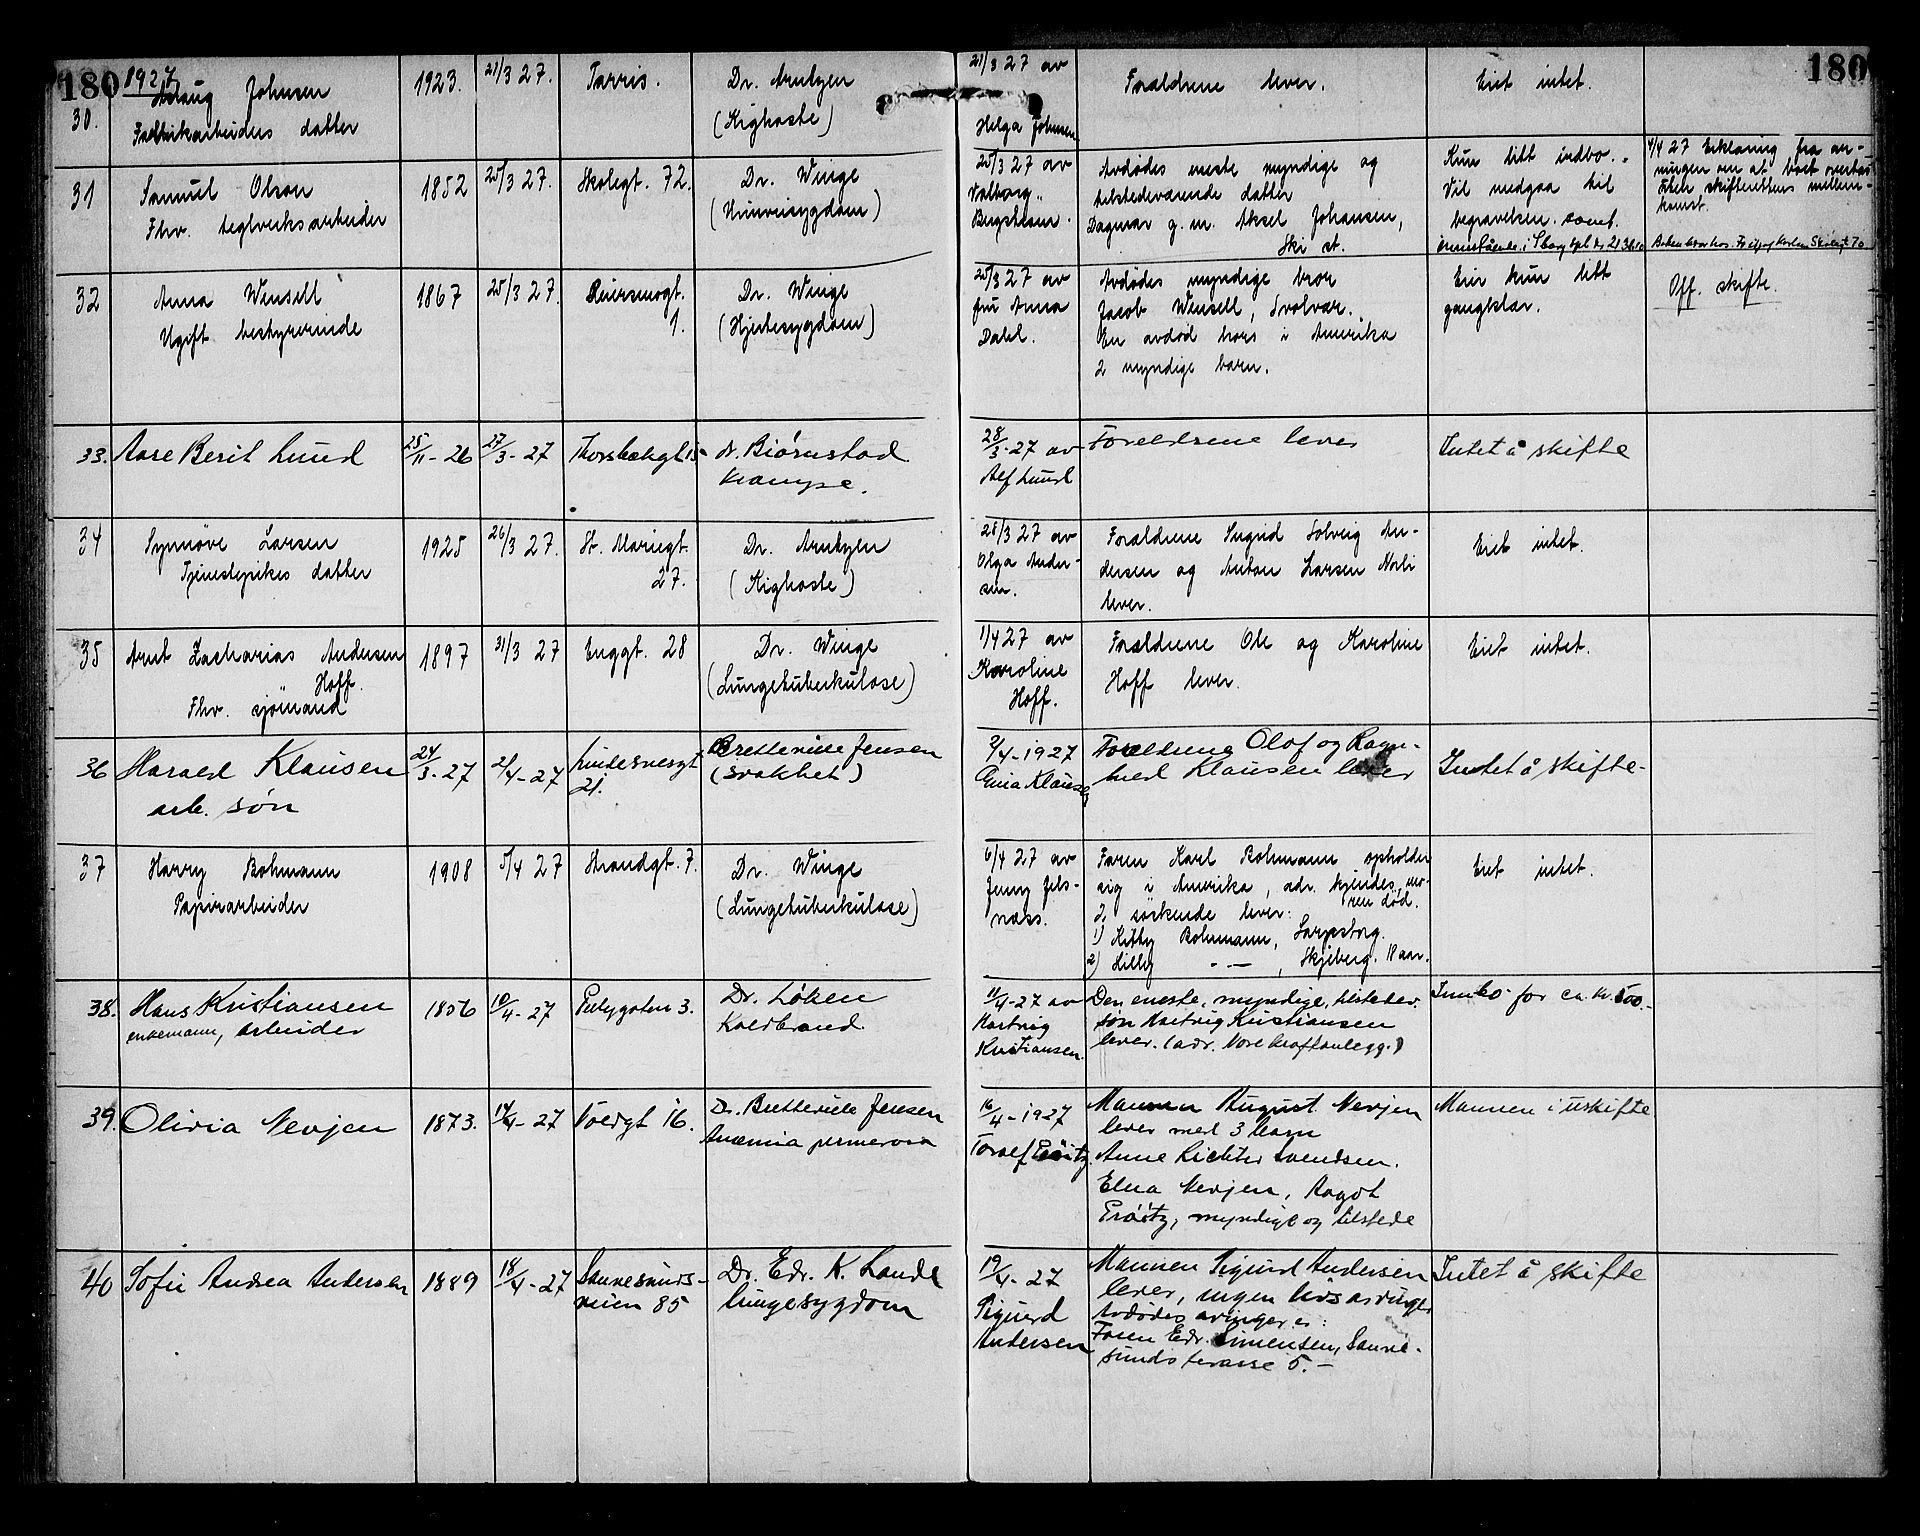 180
180
1927
30.
Aslaug Johnsen
Fabrikarbeiders datter
1923.
21/3 27.
Tarris.
Dr. Arntzen
(Kighoste)
21/3 27 av
Helga Johnsen
Forældrene lever.
Eiet intet.
31
Samuel Olsen
Fhv. teglverksarbeider
1852
25/3 27.
Skolegt. 72.
Dr. Winge
(Urinveisygdom)
25/3 27 av
Valborg
Avdødes eneste myndige og
tilstedeværende datter
Dagmar g. m. Aksel Johansen,
Ski st.
Kun litt indbo.
Vil medgaa til
begravelsen. samt
4/4 27 Erklæring fra
skifterettens mellem-
komst.
32
Anna Wensell
Ugift bestyrerinde
1867
25/3 27.
1.
Dr. Winge
(Hjertesygdom)
25/3 27 av
fru Anna
Dahl.
Avdødes myndige bror
Jacob Wensell, Svolvær.
En avdød brors i Amerika
2 myndige barn.
Eier kun litt
gangklær.
Off. skifte.
33.
Aase Berit Lund
25/11-26
27/3-27
Thorsbekgt 15
dr. Bjørnstad
krampe.
28/3-27 av
Alf Lund
Foreldrene lever
Intet å skifte
34
Synnøve Larsen
Tjenestepikes datter
1925
26/3 27.
St. Mariegt.
27.
Dr. Arntzen
(Kighoste)
28/3 27 av
Olga Ander-
sen.
Forældrene Ingrid Solveig An-
dersen og Anton Larsen Norli
lever.
Eiet intet.
35
Arnt Zacharias Andersen
Hoff.
Fhv. sjømand
1897
31/3 27
Enggt. 28
Dr. Winge
(Lungetuberkulose)
1/4 27 av
Karoline
Hoff.
Forældrene Ole og Karoline
Hoff lever.
Eiet intet.
36
Harald Klausen
arb. søn
24/3-27
2/4-27
Lindesnesgt
21.
Bretteville Jensen
(svakhet)
2/4-1927
Foreldrene Olof og Ragn-
hild Klausen lever
Intet å skifte-
37
Harry Bohmann
Papirarbeider
1908
5/4 27
Strandgt. 7.
Dr. Winge
(Lungetuberkulose)
6/4 27 av
Jenny Jels-
næss.
Faren Karl Bohmann opholder
sig i Amerika, adr. kjendes, mo-
ren død.
2 søskende lever:
1) Kitty Bohmann, Sarpsborg.
2) Hilly -"-, Skjeberg. 18 aar.
Eiet intet.
38.
Hans Kristiansen
enkemann, arbeider
1856
10/4-27
3.
Dr. Løken
Koldbrand
11/4-27 av
Hartvig
Kristiansen.
Den eneste, myndige, tilstedev.
søn Hartvig Kristiansen
lever. (adr. Nore kraftanlegg.)
Innbo for ca. kr. 500.-
39.
Olivia Nevjen
1873.
14/4-27
Voldgt 16.
Dr. Bretteville Jensen
Anæmia perniciosa
16/4-1927
Mannen August Nevjen
lever med 3 barn
Anne Richter Svendsen.
Elna Nevjen, Aagot
myndige og tilstede
Mannen i uskifte
40
Sofie Andrea Andersen
1889
18/4-27
Sannesunds-
veien 85
Dr. Edv. K. Lande
lungesygdom
19/4-27
Sigurd
Andersen
Mannen Sigurd Andersen
lever, ingen livsarvinger
Avdødes arvinger er:
Faren Edv. Simensen, Sanne-
sunds terasse 5.-
Intet å skifte